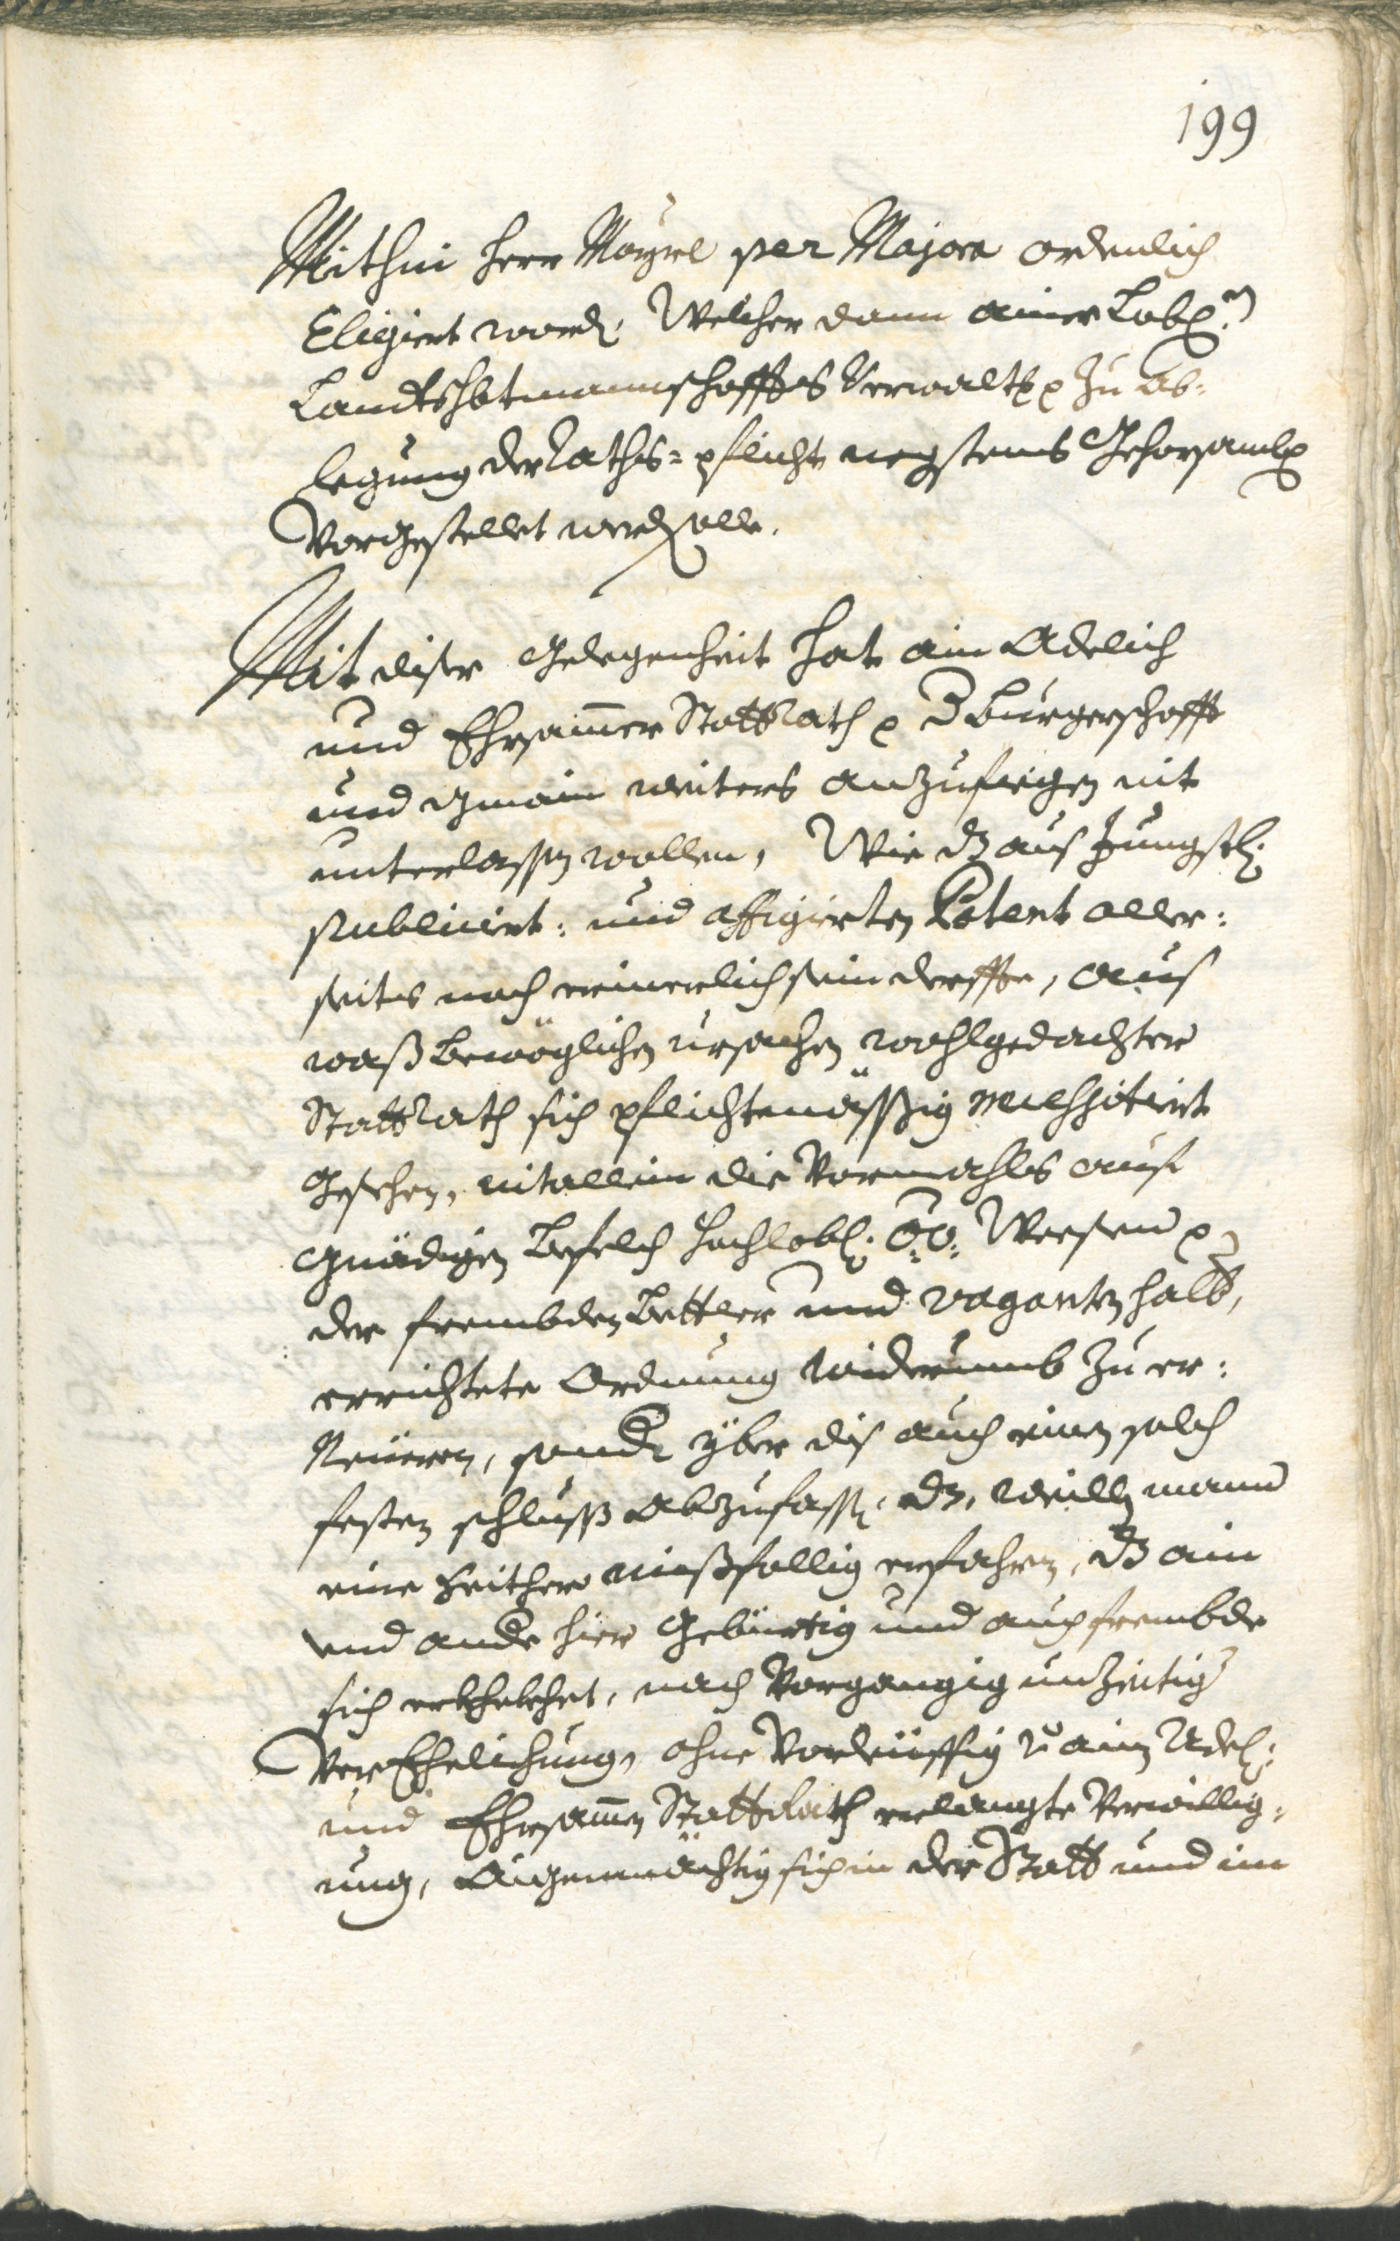 199
Mithin herr Mayrl per Majora ordenlich
Eligiert word, Welcher dann ainer Lobl:n
Landtshbtmannschafft Verwaltg zu ab=
legung der Raths=pflicht negstens Gehorsambl
Vorgestellet werd solle.
Mit diser Gelegenheit hat ain Adelich
und Ehrsamer Stattrath Burgerschafft
und Gmain weiters anzufiegen nit
unterlassen wollen, Wie dz aus Jungsth:
publiciert: und affigierten Patent aller:
seits noch erinerlich sein derffte, aus
waß bewöglichen ursachen wohlgedachter
Stattrath sich pflichtmässig necessitiert
Gesehen, nit allein die Vormahls auf
Gnädigen Befelch hochlobl: O:Ö: Weesens
der frembden Bettler und vaganten halb,
errichtete Ordnung widerumb zu er:
Neueren, sondern yber dis auch einen solch
festen schluss abzufassen, dz, weillen mann
eine Zeithero mißfallig erfahren, dz ain
und andere hier Gebürtig und auch frembde
sich erkhekhet, nach Vorgangig unzeitiger
VerEhelichung, ohne Vorleüffig von ainen Adel:
und Ehrsamen Stattrath erlangte Verwillig=
ung, Aigenmächtig sich in der Statt und im